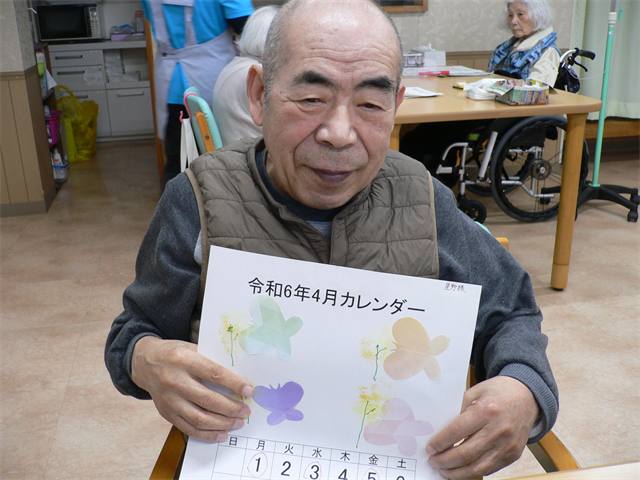 令和6年4月カレンダー
日 月 火 水 木 金 土
1 2 3 4 5 6